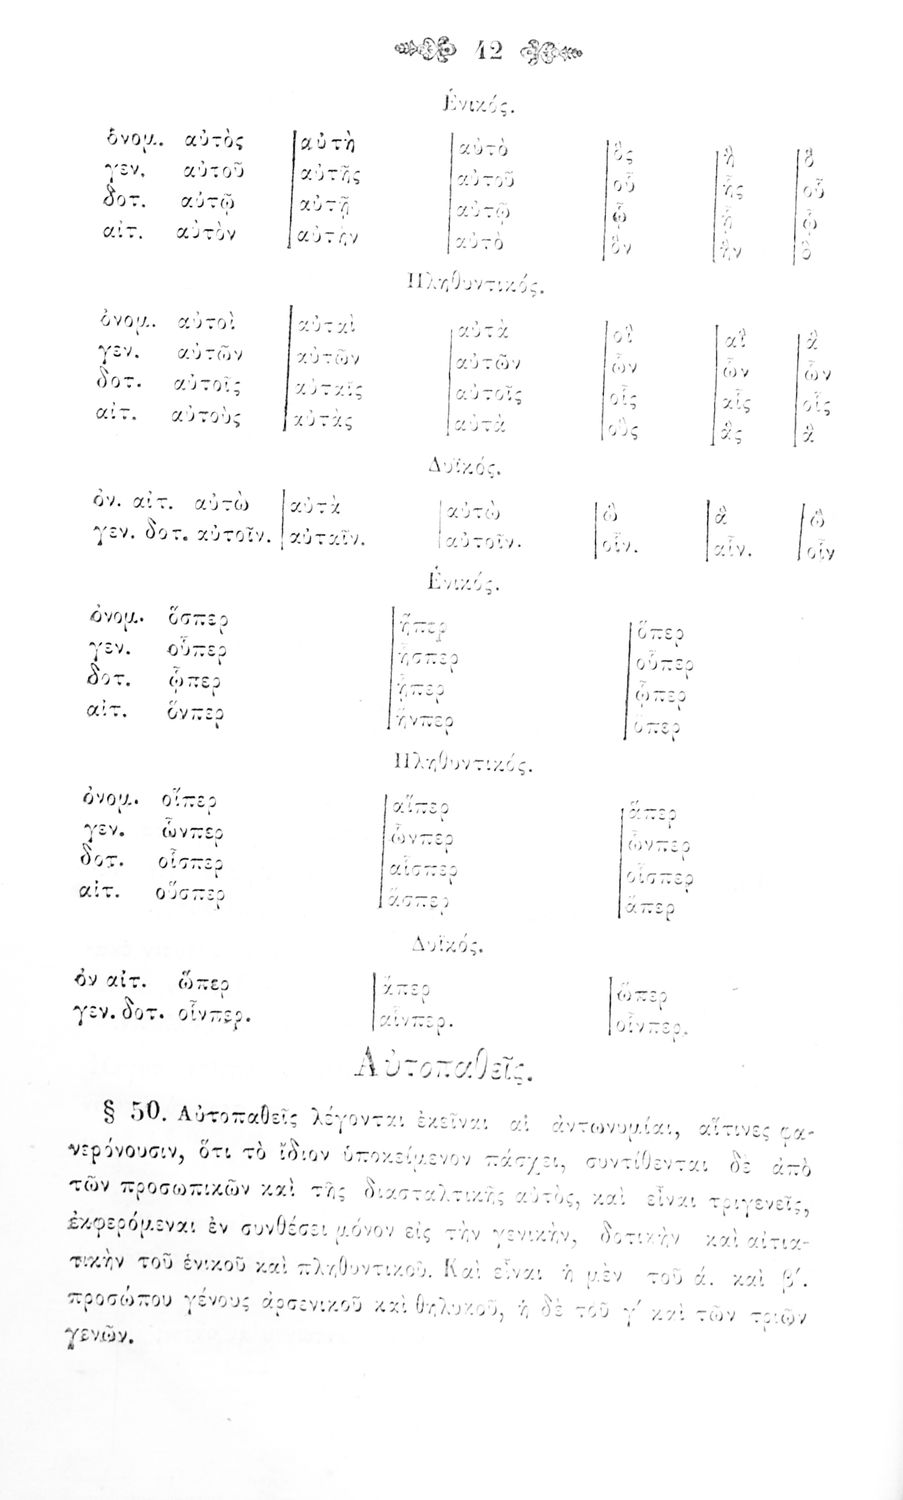 42
Ἑνικός.
ὀνομ. αὐτὸς | αὐτὴ | αὐτὸ | ὃς | ἣ | ὃ
γεν. αὐτοῦ | αὐτῆς | αὐτοῦ | οὗ | ἧς | οὗ
δοτ. αὐτῷ | αὐτῇ | αὐτῷ | ᾧ | ᾗ | ᾧ
αἰτ. αὐτὸν | αὐτὴν | αὐτὸ | ὃν | ἣν | ὃ
Πληθυντικός.
ὀνομ. αὐτοὶ | αὐταὶ | αὐτὰ | οἳ | αἳ | ἃ
γεν. αὐτῶν | αὐτῶν | αὐτῶν | ὧν | ὧν | ὧν
δοτ. αὐτοῖς | αὐταῖς | αὐτοῖς | οἷς | αἷς | οἷς
αἰτ. αὐτοὺς | αὐτὰς | αὐτὰ | οὓς | ἃς | ἃ
Δυϊκός.
ὀν. αἰτ. αὐτὼ | αὐτὰ | αὐτὼ | ὣ | ἃ | ὣ
γεν. δοτ. αὐτοῖν. | αὐταῖν. | αὐτοῖν. | οἷν. | αἷν. | οἷν
Ἑνικός.
ὀνομ. ὅσπερ | ἥπερ | ὅπερ
γεν. οὗπερ | ἧσπερ | οὗπερ
δοτ. ᾧπερ | ᾗπερ | ᾧπερ
αἰτ. ὅνπερ | ἥνπερ | ὅπερ
Πληθυντικός.
ὀνομ. οἵπερ | αἵπερ | ἅπερ
γεν. ὧνπερ | ὧνπερ | ὧνπερ
δοτ. οἷσπερ | αἷσπερ | οἷσπερ
αἰτ. οὕσπερ | ἅσπερ | ἅπερ
Δυϊκός.
ὀν αἰτ. ὥπερ | ἅπερ | ὥπερ
γεν. δοτ. οἷνπερ. | αἷνπερ. | οἷνπερ.
Αὐτοπαθεῖς.
§ 50. Αὐτοπαθεῖς λέγονται ἐκεῖναι αἱ ἀντωνυμίαι, αἵτινες φα-
νερόνουσιν, ὅτι τὸ ἴδιον ὑποκείμενον πάσχει, συντίθενται δὲ ἀπὸ
τῶν προσωπικῶν καὶ τῆς διασταλτικῆς αὐτὸς, καὶ εἶναι τριγενεῖς,
ἐκφερόμεναι ἐν συνθέσει μόνον εἰς τὴν γενικὴν, δοτικὴν καὶ αἰτια-
τικὴν τοῦ ἑνικοῦ καὶ πληθυντικοῦ. Καὶ εἶναι ἡ μὲν τοῦ ά. καὶ β΄.
προσώπου γένους ἀρσενικοῦ καὶ θηλυκοῦ, ἡ δὲ τοῦ γ΄ καὶ τῶν τριῶν
γενῶν.